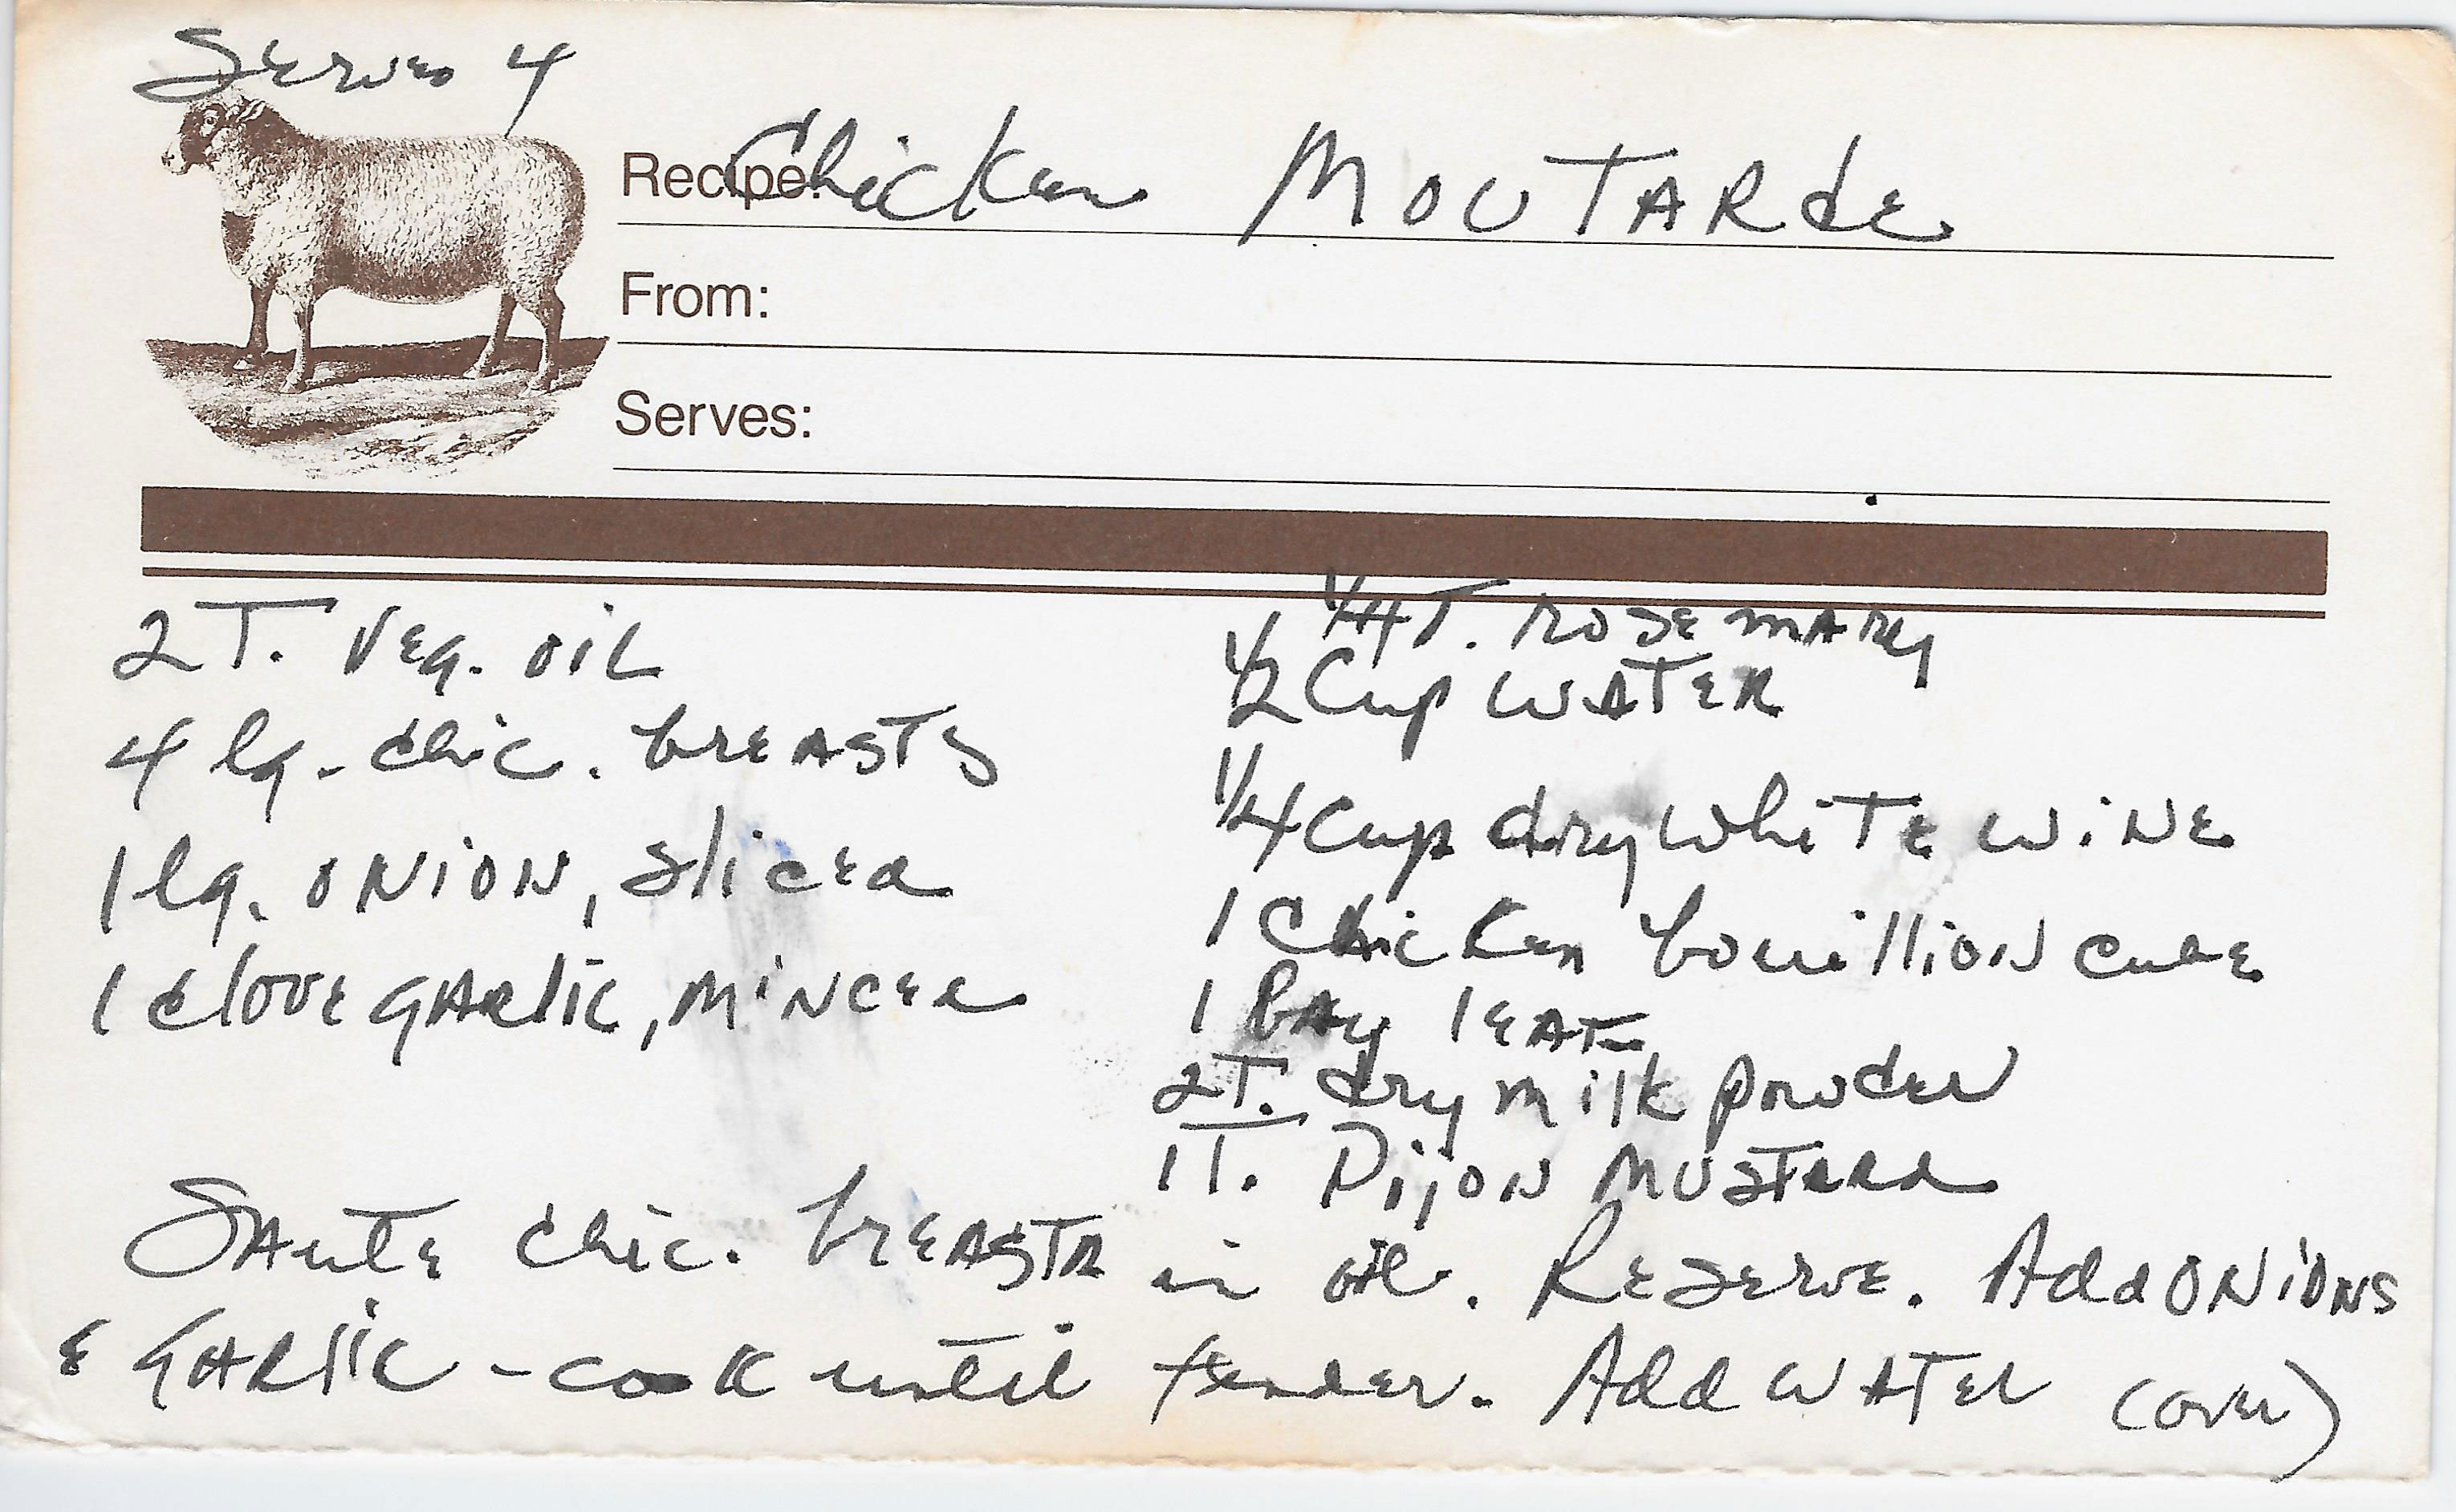 Serves 4
Recipe: Chicken MOUTARde
From:
Serves:
2 T. Veg. oil
4 lg. chic. breasts
1 lg. onion, sliced
1 clove garlic, minced
1/4 T. rosemary
1/2 Cup water
1/4 Cup dry white wine
1 Chicken bouillion cube
1 bay leaf
2 T. dry milk powder
1 T. Dijon mustard
Saute chic. breasts in oil. Reserve. Add onions
& garlic - cook until tender. Add water (over)